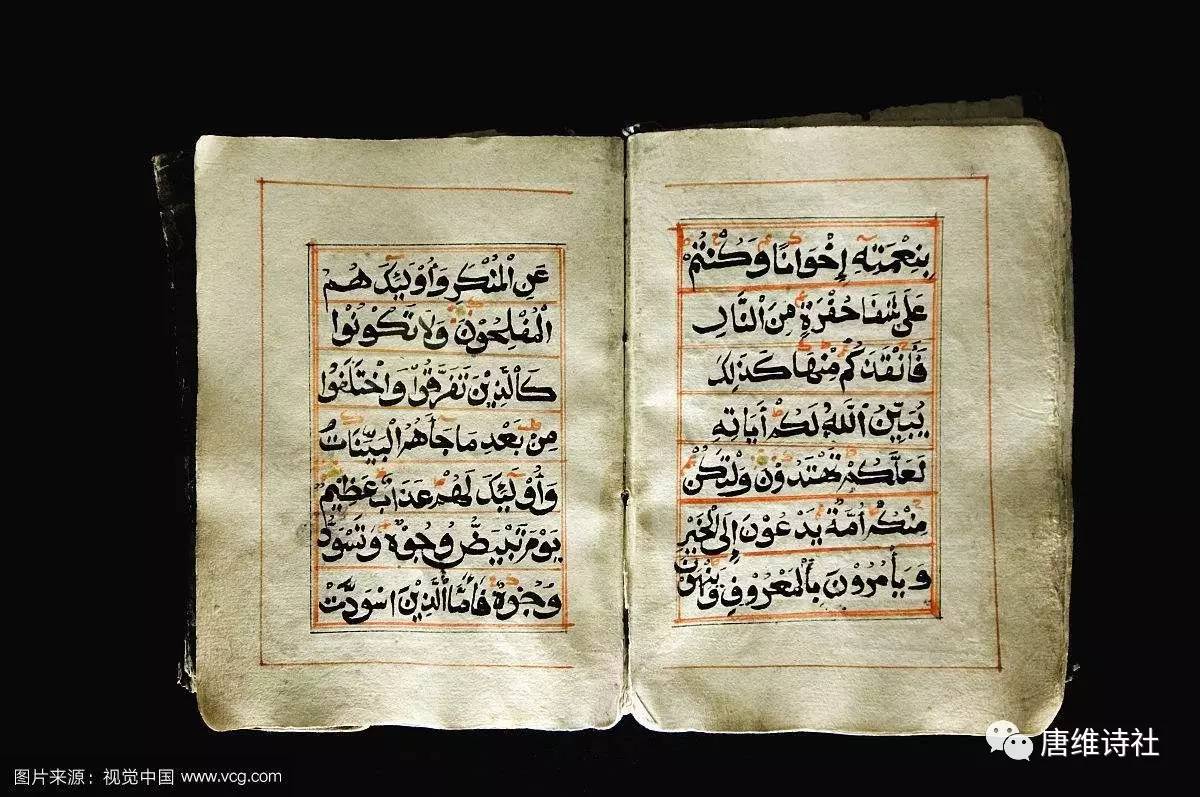 بِنِعْمَتِهِ إِخْوَانًا وَكُنْتُمْ
عَلَى شَفَا حُفْرَةٍ مِنَ النَّارِ
فَأَنْقَذَكُمْ مِنْهَا كَذَلِكَ
يُبَيِّنُ اللَّهُ لَكُمْ أَيَاتِهِ
لَعَلَّكُمْ تَهْتَدُوْنَ وَلْتَكُنْ
مِنْكُمْ أُمَّةٌ يَدْعُوْنَ إِلَى الْخَيْرِ
وَيَأْمُرُوْنَ بِالْمَعْرُوْفِ وَيَنْهَوْنَ
عَنِ الْمُنْكَرِ وَأُوْلَئِكَ هُمُ
الْمُفْلِحُوْنَ وَلَا تَكُوْنُوْا
كَالَّذِيْنَ تَفَرَّقُوْا وَاخْتَلَفُوْا
مِنْ بَعْدِ مَا جَأَهُمُ الْبَيِّنَاتُ
وَأُوْلَئِكَ لَهُمْ عَذَابٌ عَظِيْمٌ
يَوْمَ تَبْيَضُّ وُجُوْهٌ وَتَسْوَدُّ
وُجُوْهٌ فَأَمَّا الَّذِيْنَ اسْوَدَّتْ
唐维诗社
图片来源：视觉中国 www.vcg.com